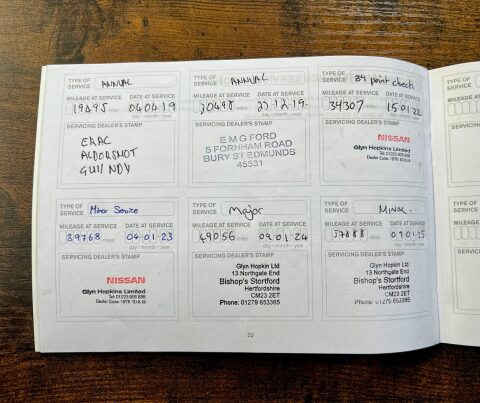 TYPE OF SERVICE ANNUAL
MILEAGE AT SERVICE DATE AT SERVICE
19495 miles 04.04.19
day - month - year
SERVICING DEALER'S STAMP
ERAC
ALDERSHOT
TYPE OF SERVICE ANNUAL
MILEAGE AT SERVICE DATE AT SERVICE
20498 miles 27.12.19.
day - month - year
SERVICING DEALER'S STAMP
E M G FORD
5 FORNHAM ROAD
BURY ST EDMUNDS
45531
TYPE OF SERVICE 34 point check
MILEAGE AT SERVICE DATE AT SERVICE
34307 miles 15.01.22
day - month - year
SERVICING DEALER'S STAMP
NISSAN
Glyn Hopkins Limited
TYPE OF SERVICE Minor Service
MILEAGE AT SERVICE DATE AT SERVICE
39768 miles 04.01.23
day - month - year
SERVICING DEALER'S STAMP
NISSAN
Glyn Hopkins Limited
TYPE OF SERVICE Major
MILEAGE AT SERVICE DATE AT SERVICE
49056 miles 09.01.24
day - month - year
SERVICING DEALER'S STAMP
Glyn Hopkin Ltd
13 Northgate End
Bishop's Stortford
Hertfordshire
CM23 2ET
Phone: 01279 653365
TYPE OF SERVICE
MILEAGE AT SERVICE DATE AT SERVICE
miles
day - month - year
SERVICING DEALER'S STAMP
Glyn Hopkin Ltd
13 Northgate End
Bishop's Stortford
Hertfordshire
CM23 2ET
Phone: 01279 653365
22
TYPE OF SERVICE
MILEAGE
SERVICING
TYPE OF SERVICE
MILEAGE
SERVICING